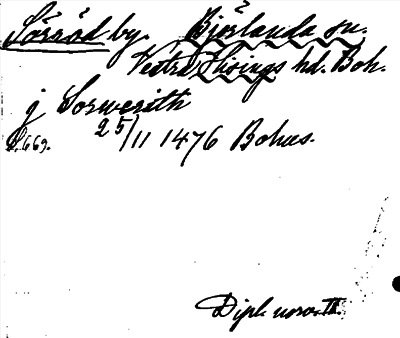 Sörröd by. Björlanda sn.
Vestra Hisings hd. Boh.
j Sorwerith
S. 669. 25/11 1476 Bohus.
Dipl. norv. II.